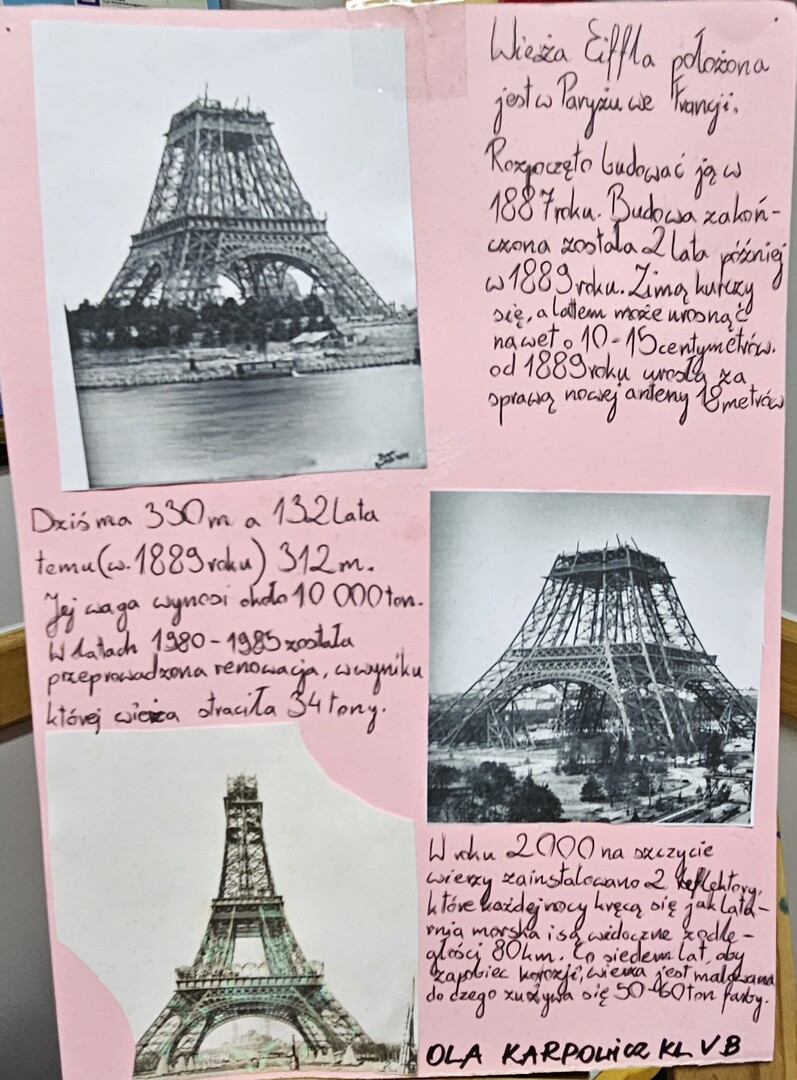 Wieża Eiffla położona
jest w Paryżu we Francji.
Rozpoczęto budować ją w
1887 roku. Budowa zakoń-
czona została 2 lata później
w 1889 roku. Zimą kurczy
się, a latem może urosnąć
nawet o 10-15 centymetrów.
od 1889 roku urosła za
sprawą nowej anteny 18 metrów
Dziś ma 330 m a 132 lata
temu (w. 1889 roku) 312 m.
Jej waga wynosi około 10 000 ton.
W latach 1980-1985 została
przeprowadzona renowacja, w wyniku
której wieża straciła 34 tony.
W roku 2000 na szczycie
wierzy zainstalowano 2 reflektory,
które każdej nocy kręcą się jak lata-
rnia morska i są widoczne z odle-
głości 80 km. Co siedem lat, aby
zapobiec korozji, wieża jest malowana
do czego zużywa się 50-60 ton farby.
OLA KARPOWICZ KL V B